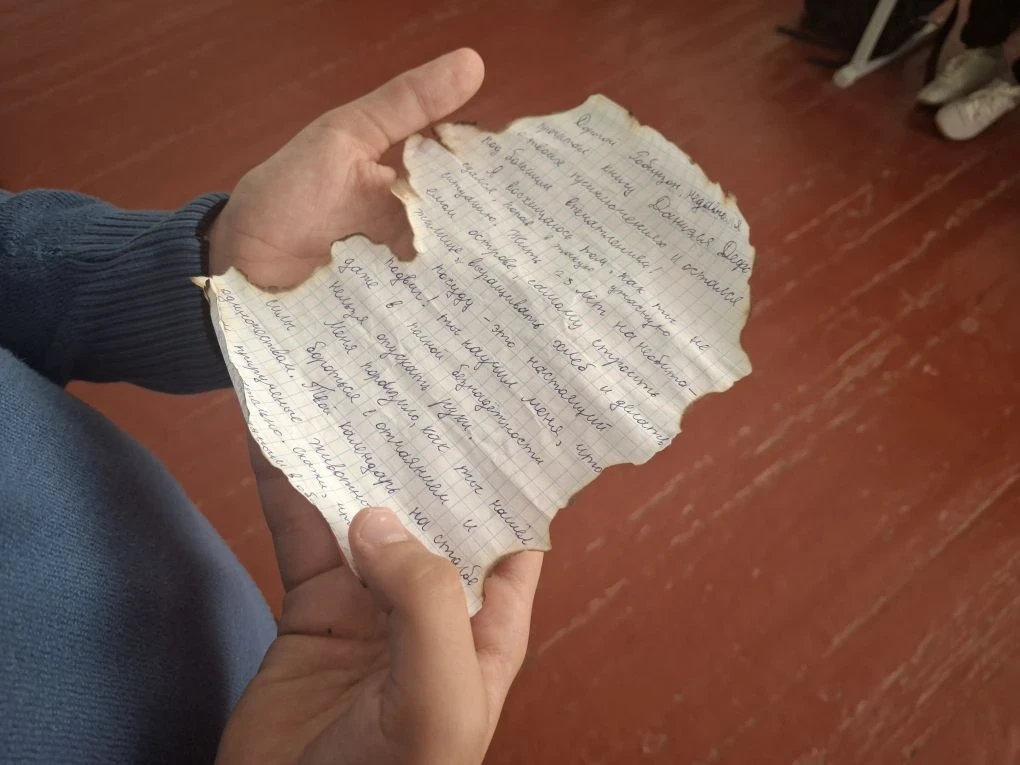 Дорогой Робинзон, недавно я
прочитал книгу Даниэля Дефо
о твоих приключениях и остался
под большим впечатлением!
Я восхищаюсь тем, как ты не
сдался, попав в такую ужасную
ситуацию. Жить 28 лет на необита-
емом острове, самому строить
жилище, выращивать хлеб и делать
посуду - это настоящий
подвиг! Ты научил меня, что
даже в полной безнадёжности
нельзя опускать руки.
Меня поразило, как ты нашёл
силы бороться с отчаянием и
одиночеством. Твой календарь на столбе
прирученные
скажи,